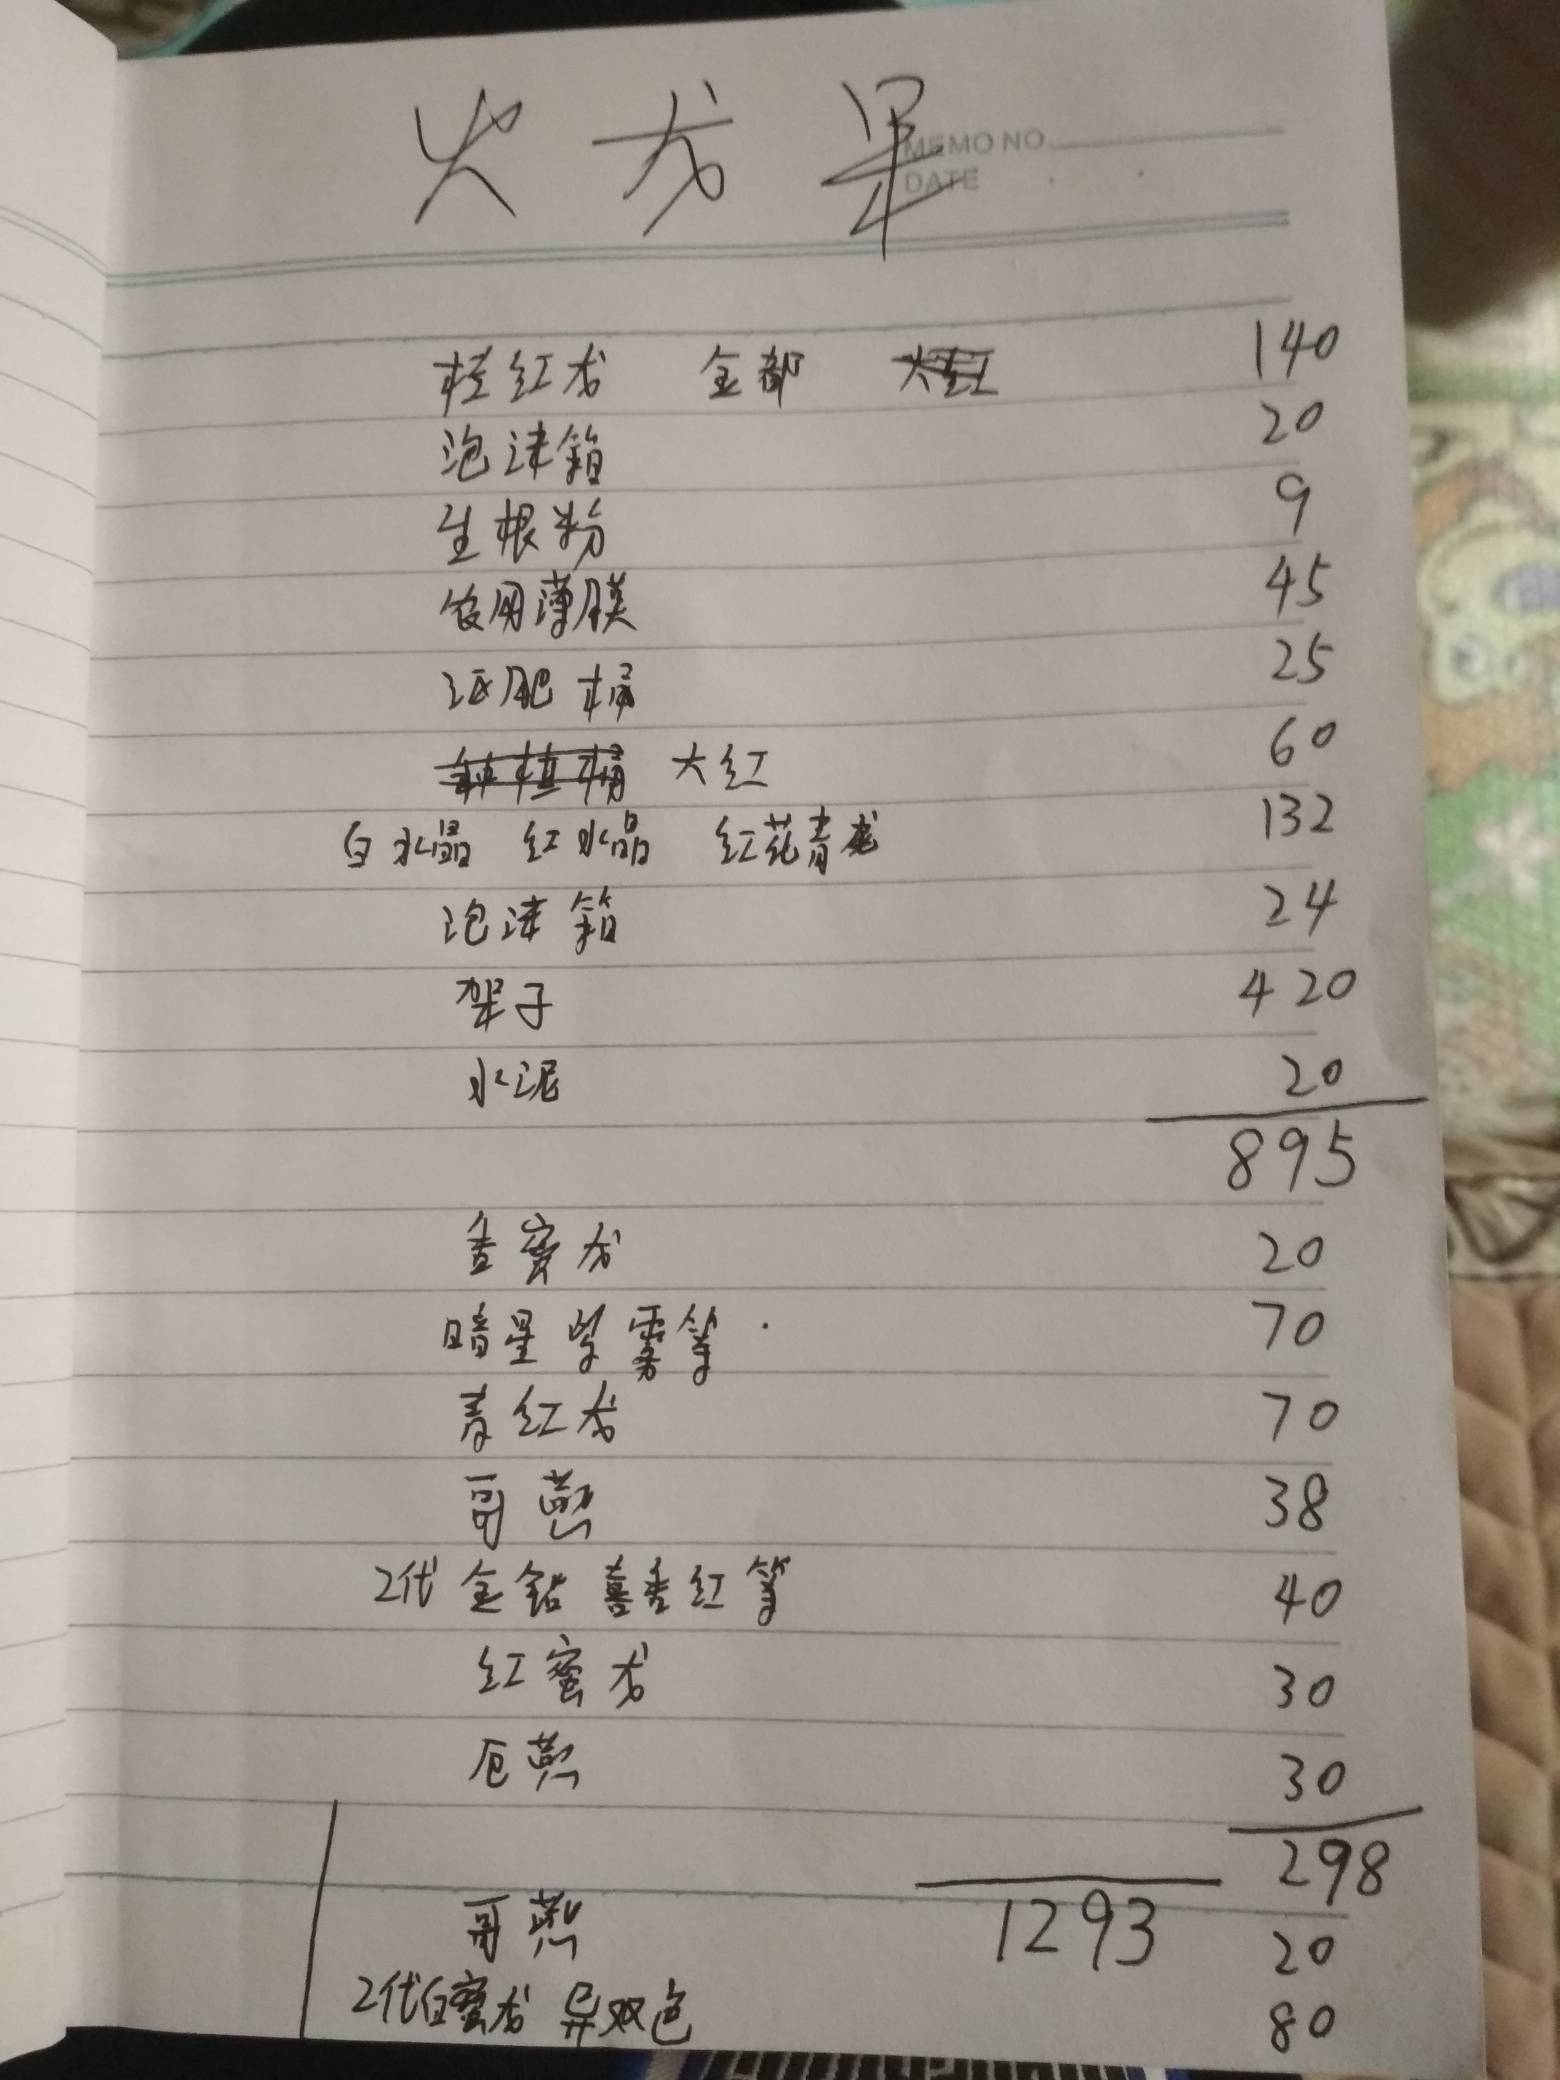 火龙果
MEMO NO
DATE
桂红龙 全部 大红 140
泡沫箱 20
生根粉 9
农用薄膜 45
沤肥桶 25
大红 60
白水晶 红水晶 红花青龙 132
泡沫箱 24
架子 420
水泥 20
895
香蜜龙 20
暗星 紫雾等 70
青红龙 70
哥燕 38
2代 金钻 喜香红 等 40
红蜜龙 30
厄燕 30
298
1293
哥燕 20
2代白蜜龙 异双色 80